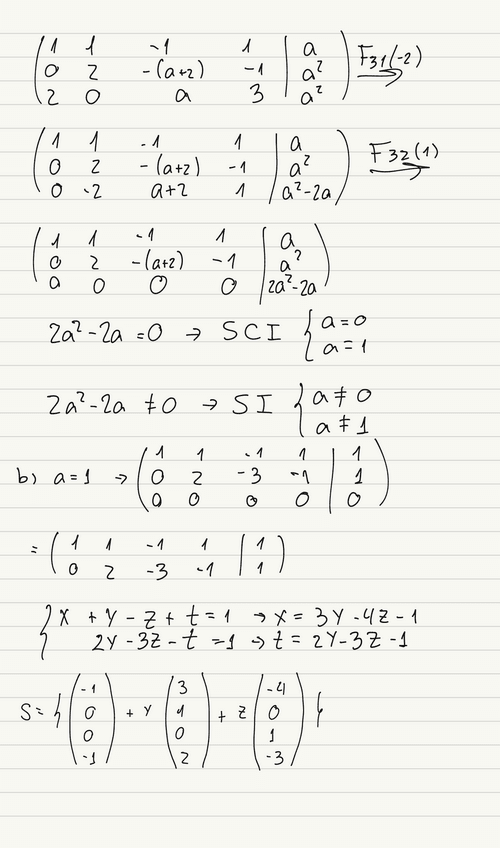 ( 1 1 -1 1 | a )
( 0 2 -(a+2) -1 | a² ) F31(-2) →
( 2 0 a 3 | a² )
( 1 1 -1 1 | a )
( 0 2 -(a+2) -1 | a² ) F32(1) →
( 0 -2 a+2 1 | a²-2a )
( 1 1 -1 1 | a )
( 0 2 -(a+2) -1 | a² )
( 0 0 0 0 | 2a²-2a )
2a²-2a=0 → SCI { a=0
a=1
2a²-2a≠0 → SI { a≠0
a≠1
( 1 1 -1 1 | 1 )
b) a=1 → ( 0 2 -3 -1 | 1 )
( 0 0 0 0 | 0 )
= ( 1 1 -1 1 | 1 )
( 0 2 -3 -1 | 1 )
{ x + y - z + t = 1 → x = 3y - 4z - 1
2y - 3z - t = 1 → t = 2y - 3z - 1
S = { ( -1 0 0 -1 ) + y ( 3 1 0 2 ) + z ( -4 0 1 -3 ) }